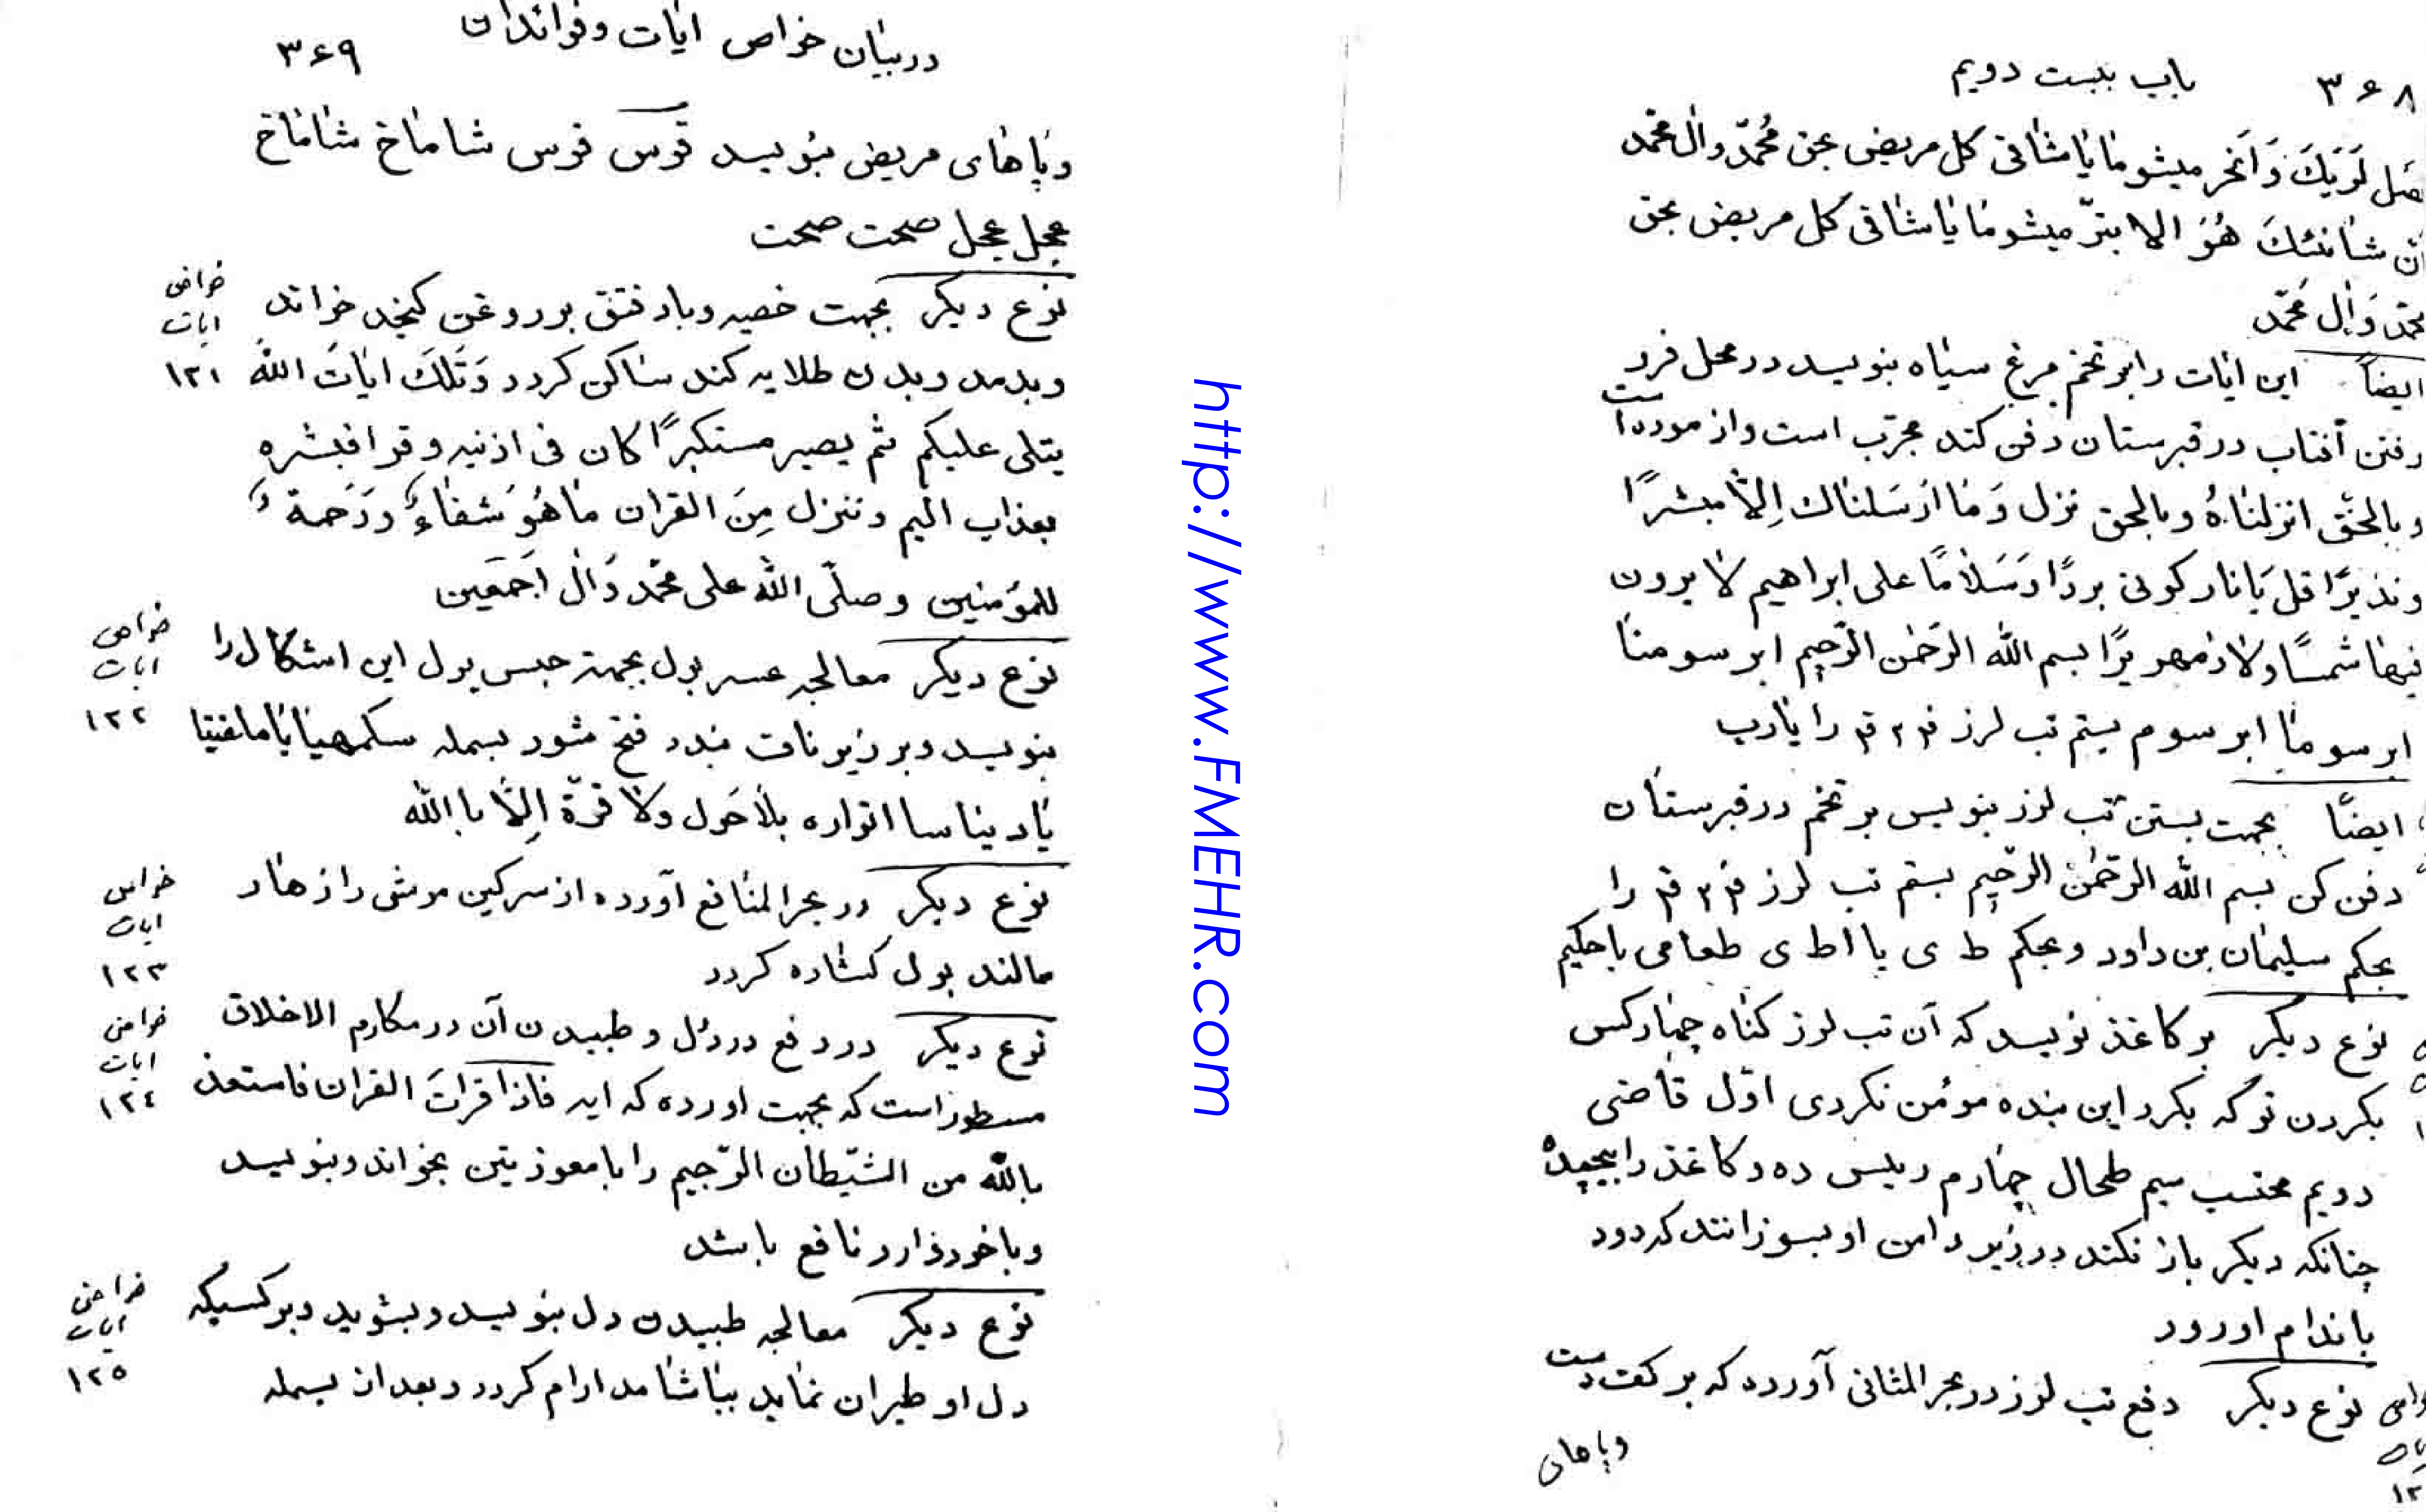 ۳۶۸ باب بیست دویم
فصل لربک وانحر میشوما یا شافی کل مریض بحق محمد وال محمد
ان شانئک هو الابتر میشوما یا شافی کل مریض بحق
محمد وال محمد
ایضا این ایات را بر تخم مرغ سیاه بنویسد در محل فرو
رفتن آفتاب در قبرستان دفن کند مجرب است
وبالحق انزلناه وبالحق نزل وما ارسلناک الا مبشرا
ونذیرا قل یا نار کونی بردا وسلاما علی ابراهیم لا یرون
فیها شمسا ولا زمهریرا بسم الله الرحمن الرحیم ابر سومنا
ابر سوما ابر سوم بستم تب لرز را یارب
ایضا بجهت بستن تب لرز بنویس بر تخم در قبرستان
دفن کن بسم الله الرحمن الرحیم بستم تب لرز را
بحکم سلیمان بن داود وبحکم ط ی یا اط ی طعامی یا حکیم
نوع دیکر بر کاغذ نویسد که آن تب لرز کناه چهار کس
بکردن تو که بکرد این بنده مؤمن نکردی اول قاضی
دویم محتسب سیم طحال چهارم رییس ده و کاغذ را بپیچیده
چنانکه دیکر باز نکند در زیر دامن او بسوزانند که دود
باندام او رود
نوع دیکر دفع تب لرز در بحر المثانی آورده که بر کف دست
وپاهای
در بیان خواص ایات وفوائد ان ۳۶۹
وپاهای مریض بنویسد قوس قوس شاماخ شاماخ
عجل عجل صحت صحت
نوع دیکر بجهت خصیه وباد فتق بر روغن کنجد خواند
خواص ایات ۱۲۱
وبدمد وبدن طلایه کند ساکن کردد وتلک ایات الله
یتلی علیکم ثم یصیر مستکبرا کان فی اذنیه وقرا فبشره
بعذاب الیم وننزل من القران ما هو شفاء ورحمة
للمؤمنین وصلی الله علی محمد وال اجمعین
نوع دیکر معالجه عسر بول بجهة حبس بول این اشکال را
خواص ایات ۱۲۲
بنویسد وبر زیر ناف بندد فتح شود بسمله
بلا حول ولا قوة الا باالله
نوع دیکر در بحر المنافع آورده از سرکین موش را زهار
خواص ایات ۱۲۳
مالند بول کشاده کردد
نوع دیکر در دفع درد دل و طبیدن آن در مکارم الاخلاق
خواص ایات ۱۲٤
مسطور است که بجهت اورده که ایه فاذا قرات القران فاستعذ
بالله من الشیطان الرجیم را با معوذیتن بخواند وبنویسد
وبا خود دارد نافع باشد
نوع دیکر معالجه طبیدن دل بنویسد وبشوید وبر کسیکه
خواص ایات ۱۲۵
دل او طیران نماید بیاشامد ارام کردد وبعد از بسمله
http://www.FMEHR.com